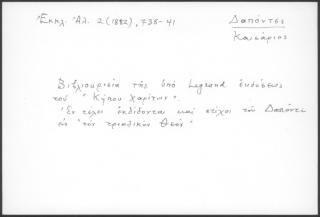 Ἐκκλ. Ἀλ. 2 (1882), 735-41
Δαπόντες
Καισάριος
Βιβλιοκρισία τῆς ὑπὸ Legrand ἐκδόσεως
τοῦ "Κήπου Χαρίτων".
Ἐν τέλει ἐκδίδονται καὶ στίχοι τοῦ Δαπόντε
εἰς "τὸν τριαδικὸν Θεόν"